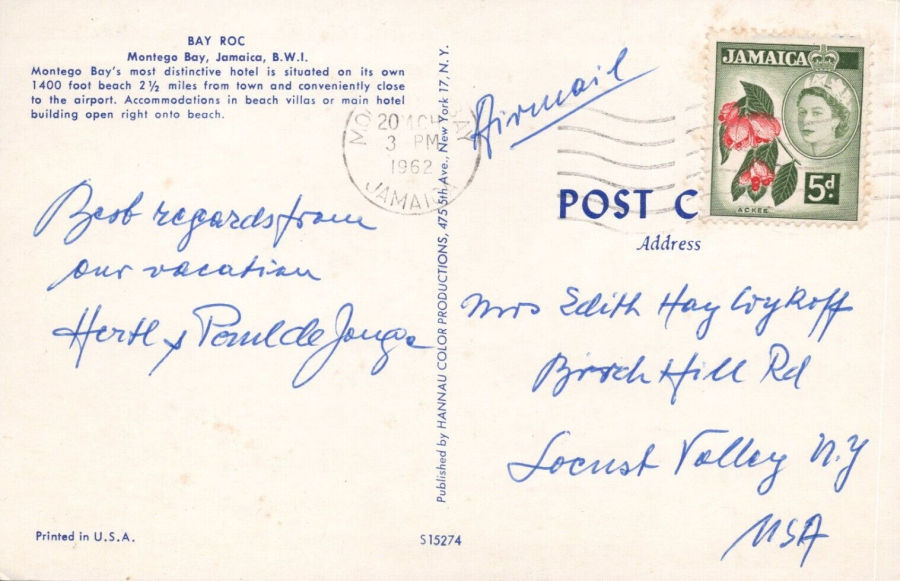 BAY ROC
Montego Bay, Jamaica, B.W.I.
Montego Bay's most distinctive hotel is situated on its own
1400 foot beach 2½ miles from town and conveniently close
to the airport. Accommodations in beach villas or main hotel
building open right onto beach.
20 MCH
3 PM
1962
JAMAICA
Airmail
JAMAICA
ACKEE
5d
POST C
Address
Best regards from
our vacation
Hertl & Paul de Jonge
Mrs Edith Hay Wykoff
Birch Hill Rd
Locust Valley N.Y
USA
Published by HANNAU COLOR PRODUCTIONS, 475 5th Ave., New York 17, N.Y.
Printed in U.S.A.
S15274